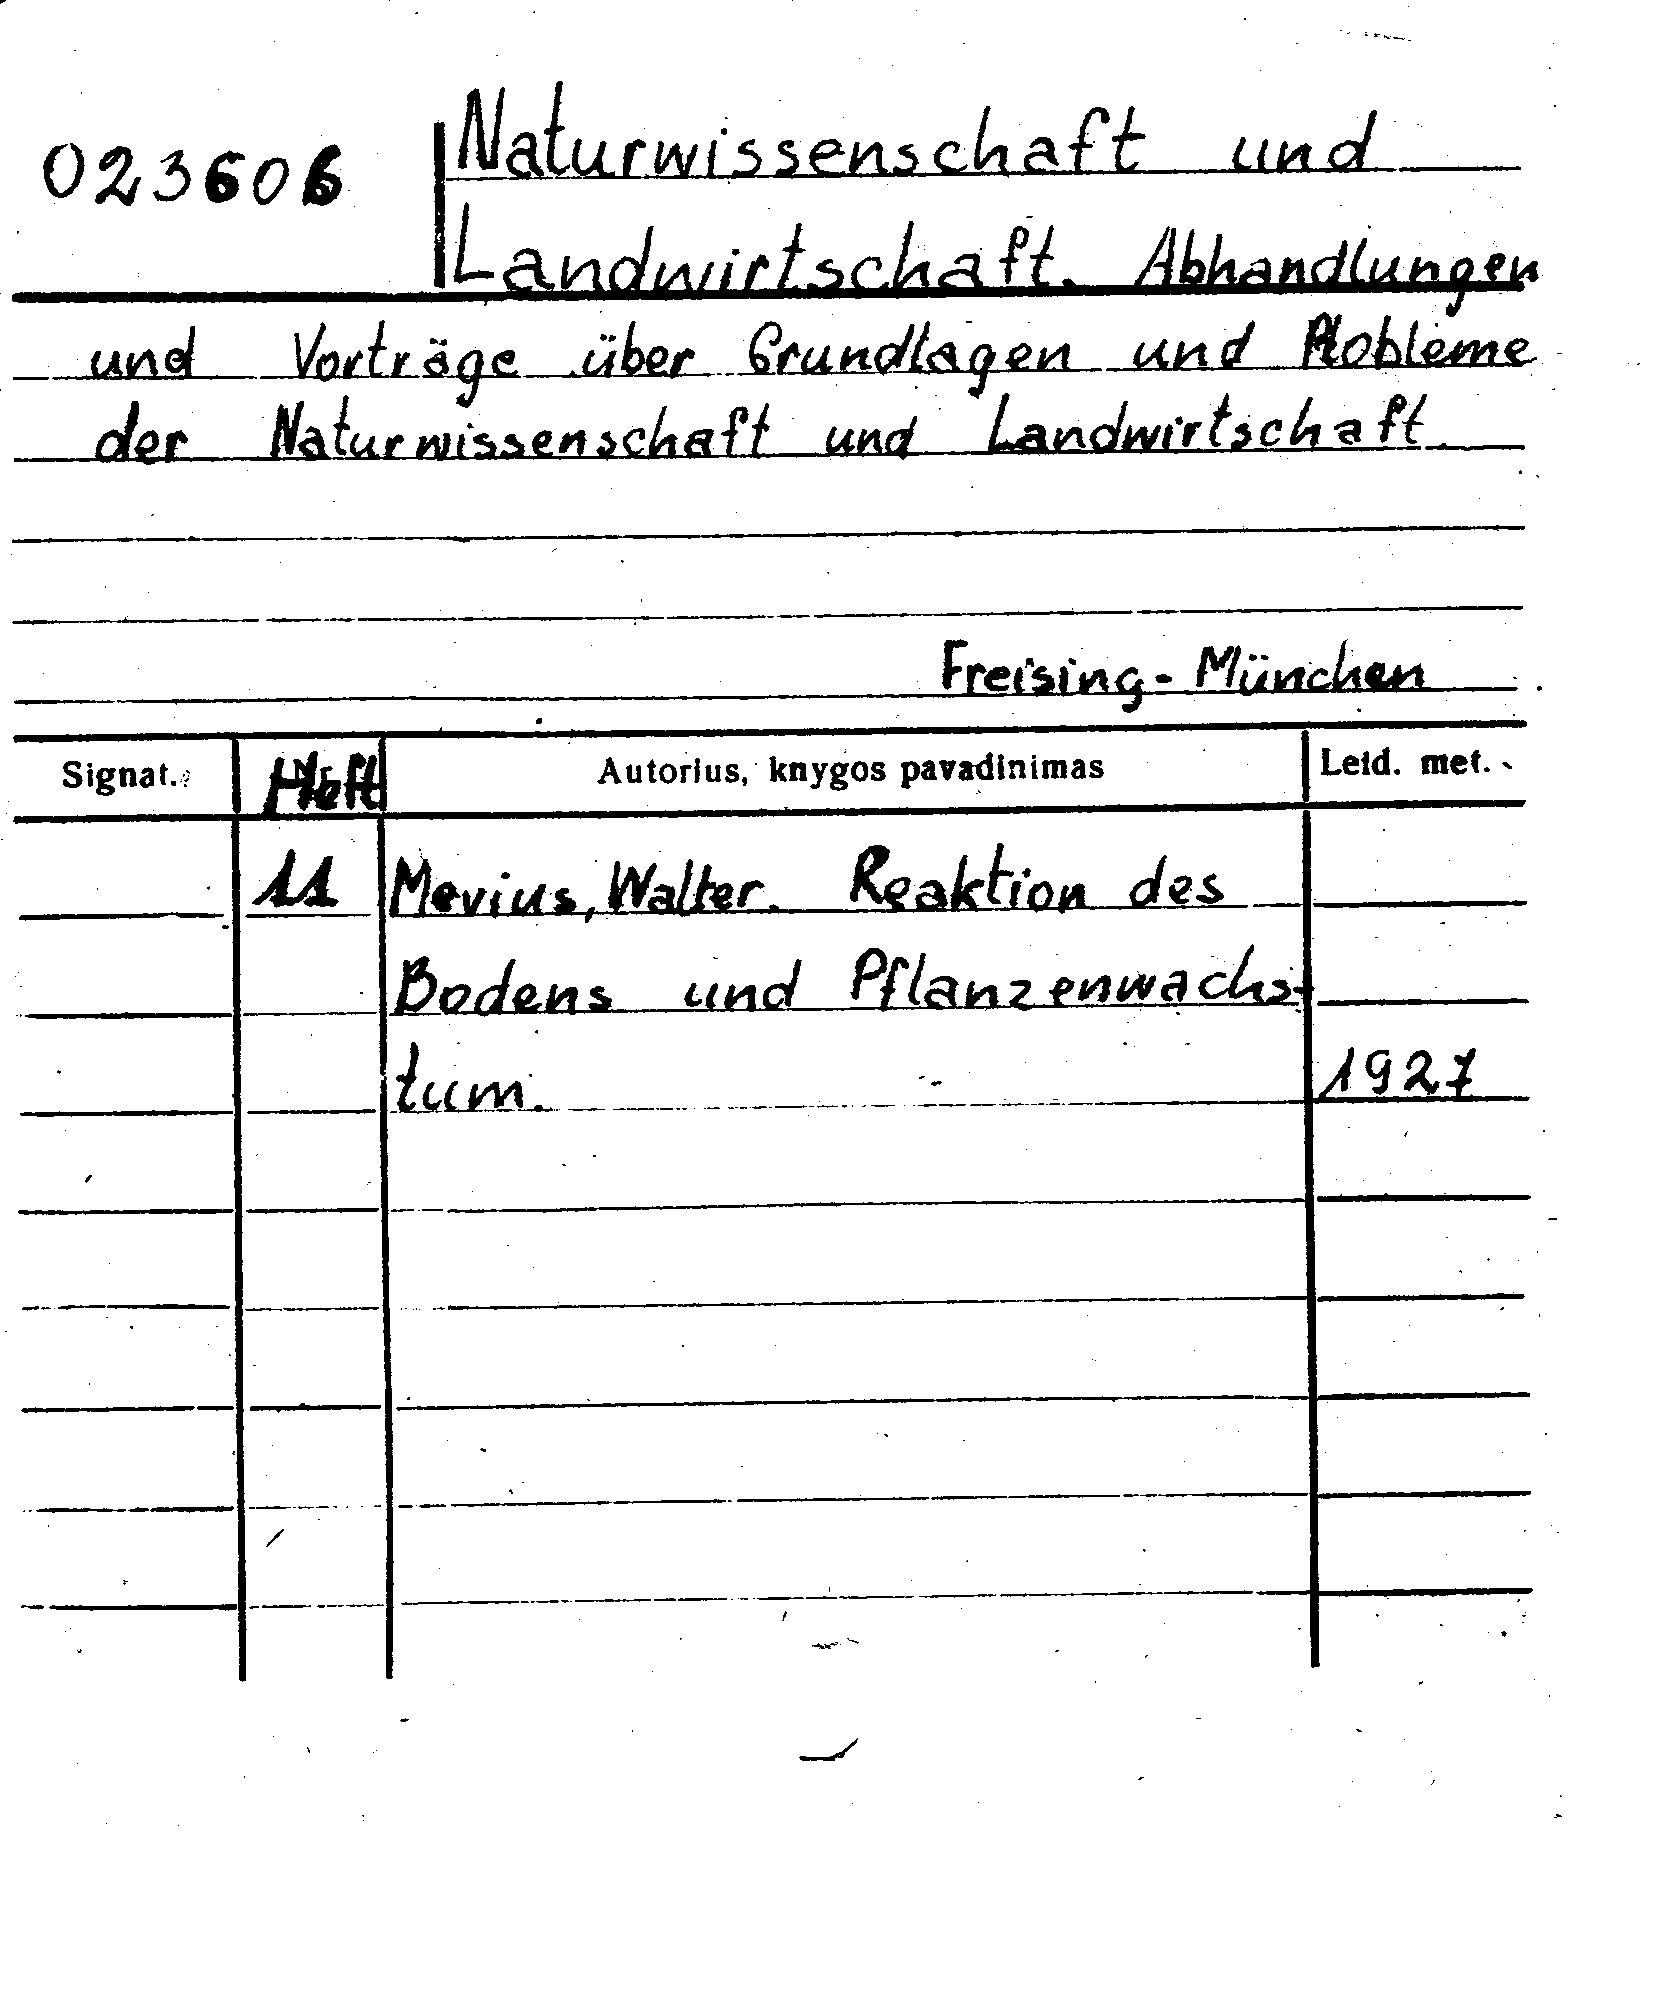 023606 Naturwissenschaft und
Landwirtschaft. Abhandlungen
und Vorträge über Grundlagen und Probleme
der Naturwissenschaft und Landwirtschaft.
Freising-München
Signat. Heft Autorius, knygos pavadinimas Leid. met.
11 Mevius, Walter. Reaktion des
Bodens und Pflanzenwachs-
tum. 1927